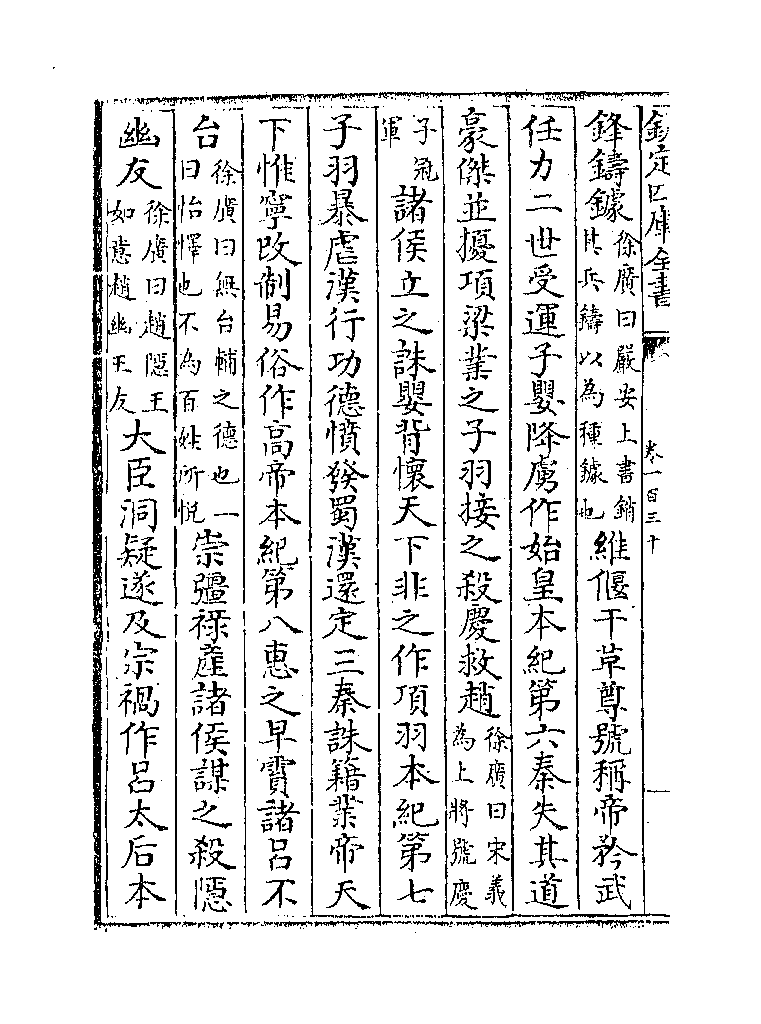 欽定四庫全書
卷一百三十
鋒鑄鐻徐廣曰嚴安上書銷其兵鑄以為種鐻也維偃干革尊號稱帝矜武
任力二世受運子嬰降虜作始皇本紀第六秦失其道
豪傑並擾項梁業之子羽接之殺慶救趙徐廣曰宋義為上將號慶
子冠軍諸侯立之誅嬰背懷天下非之作項羽本紀第七
子羽暴虐漢行功德憤發蜀漢還定三秦誅籍業帝天
下惟寧改制易俗作高帝本紀第八惠之早霣諸吕不
台徐廣曰無台輔之德也一曰怡懌也不為百姓所悅崇彊祿產諸侯謀之殺隱
幽友徐廣曰趙隱王如意趙幽王友大臣洞疑遂及宗禍作吕太后本